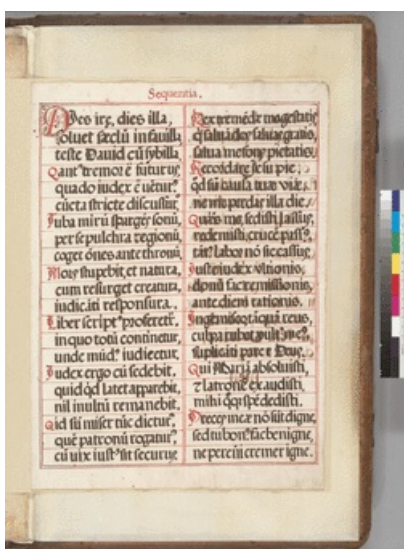 Sequentia.
Dies irę, dies illa,
soluet sæclū in fauilla
teste Dauid cū sybilla
Quant⁹ tremor ē futurus
quādo iudex ē uētur⁹
cūcta stricte discussur⁹
Tuba mirū spargēs sonū
per sepulchra regionū
coget ōnes ante thronū
Mors stupebit, et natura,
cum resurget creatura,
iudicāti responsura.
Liber script⁹ proferet᷑
in quo totū continetur,
unde mūd⁹ iudicetur.
Iudex ergo cū sedebit,
quidqd latet apparebit,
nil inultū remanebit.
Qid sū miser tūc dictur⁹,
quē patronū rogatur⁹
cū uix iust⁹ sit securus
Rex tremēdæ magestatis
q saluādos saluas gratis,
salua me fons pietatis.
Recordare Iesu pie,
qd sū causa tuæ viæ,
ne me perdas illa die.
Quærēs me, sedisti lassus,
redemisti, crucē pass⁹,
tāt⁹ labor nō sit cassus.
Iuste iudex vltionis,
donū fac remissionis,
ante diem rationis.
Ingemisco, tāquā reus,
culpa rubet vult⁹ me⁹,
suplicāti parce Deus.
Qui Mariā absoluisti,
⁊ latronē exaudisti,
mihi qq; spē dedisti.
Preces meæ nō sūt dignę,
sed tu bon⁹ fac benigne,
ne perēni cremer igne.